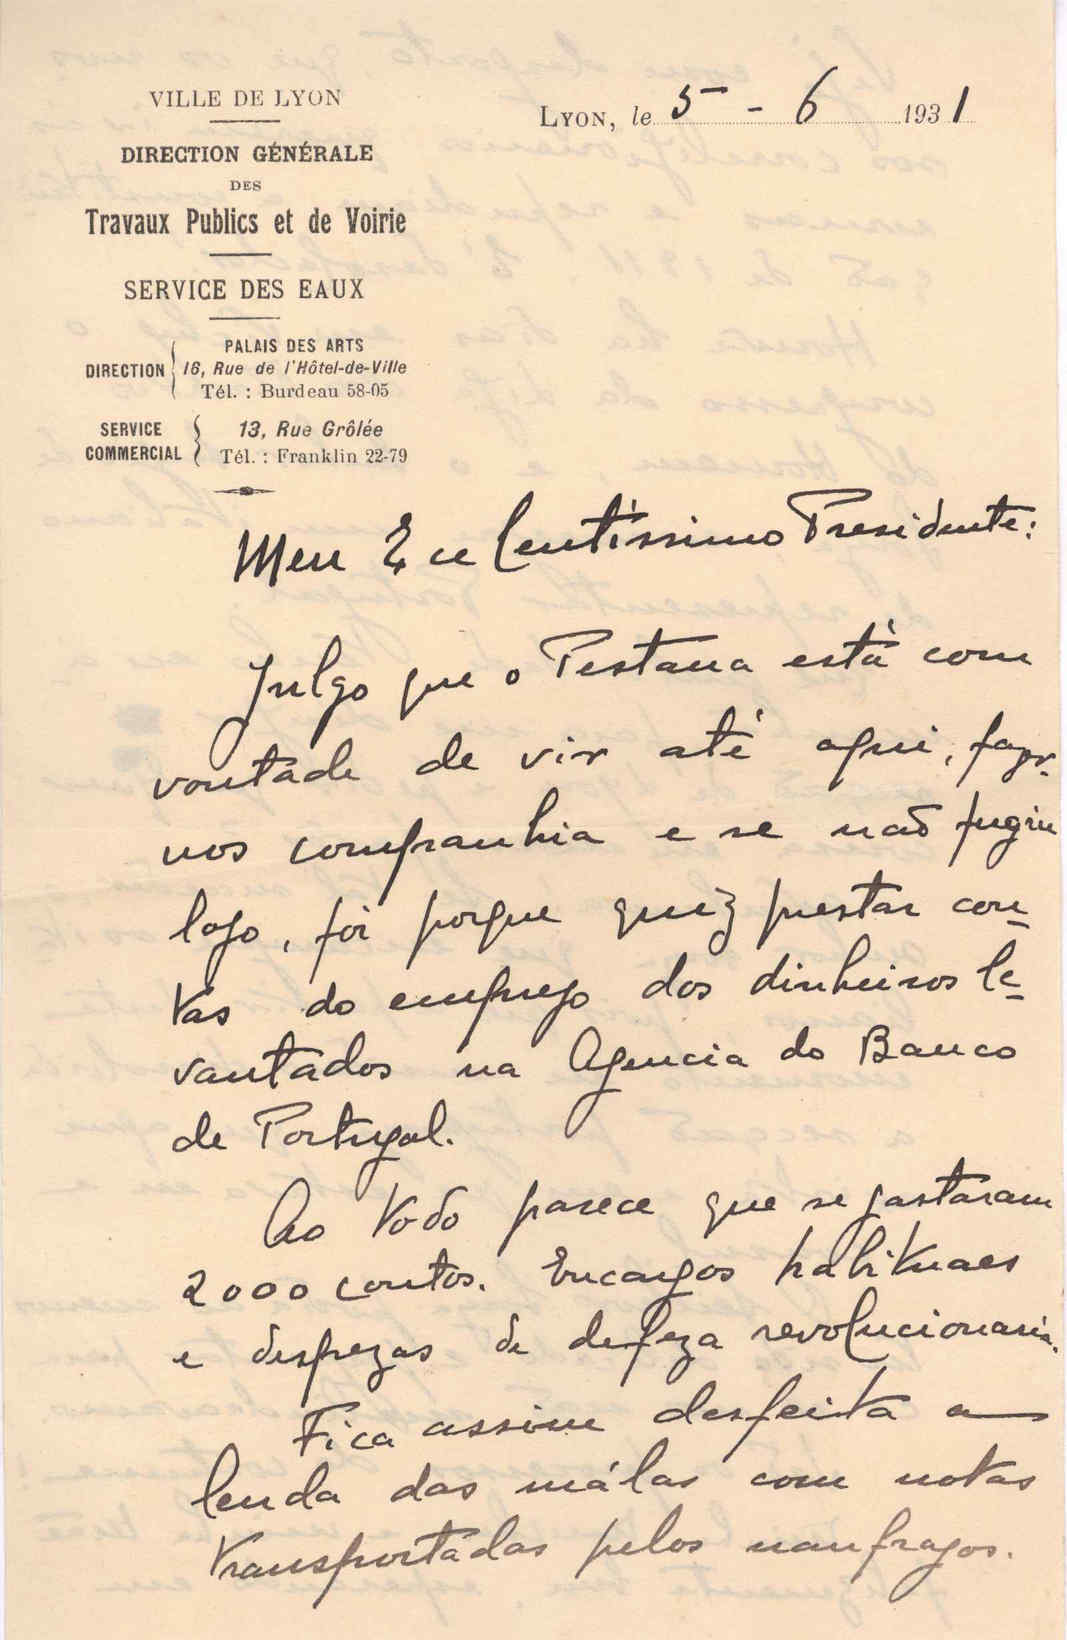 VILLE DE LYON
DIRECTION GÉNÉRALE
DES
Travaux Publics et de Voirie
SERVICE DES EAUX
DIRECTION { PALAIS DES ARTS
16, Rue de l'Hôtel-de-Ville
Tél. : Burdeau 58-05
SERVICE COMMERCIAL { 13, Rue Grôlée
Tél. : Franklin 22-79
LYON, le 5 - 6 1931
Meu Excelentíssimo Presidente:
Julgo que o Pestana está com
vontade de vir até aqui, fazer-
nos companhia e se não fugiu
logo, foi porque quiz prestar con-
tas do emprego dos dinheiros le-
vantados na Agencia do Banco
de Portugal.
Ao todo parece que se gastaram
2000 contos. Encargos habituaes
e despezas de defeza revolucionaria.
Fica assim desfeita a
lenda das málas com notas
transportadas pelos naufragos.